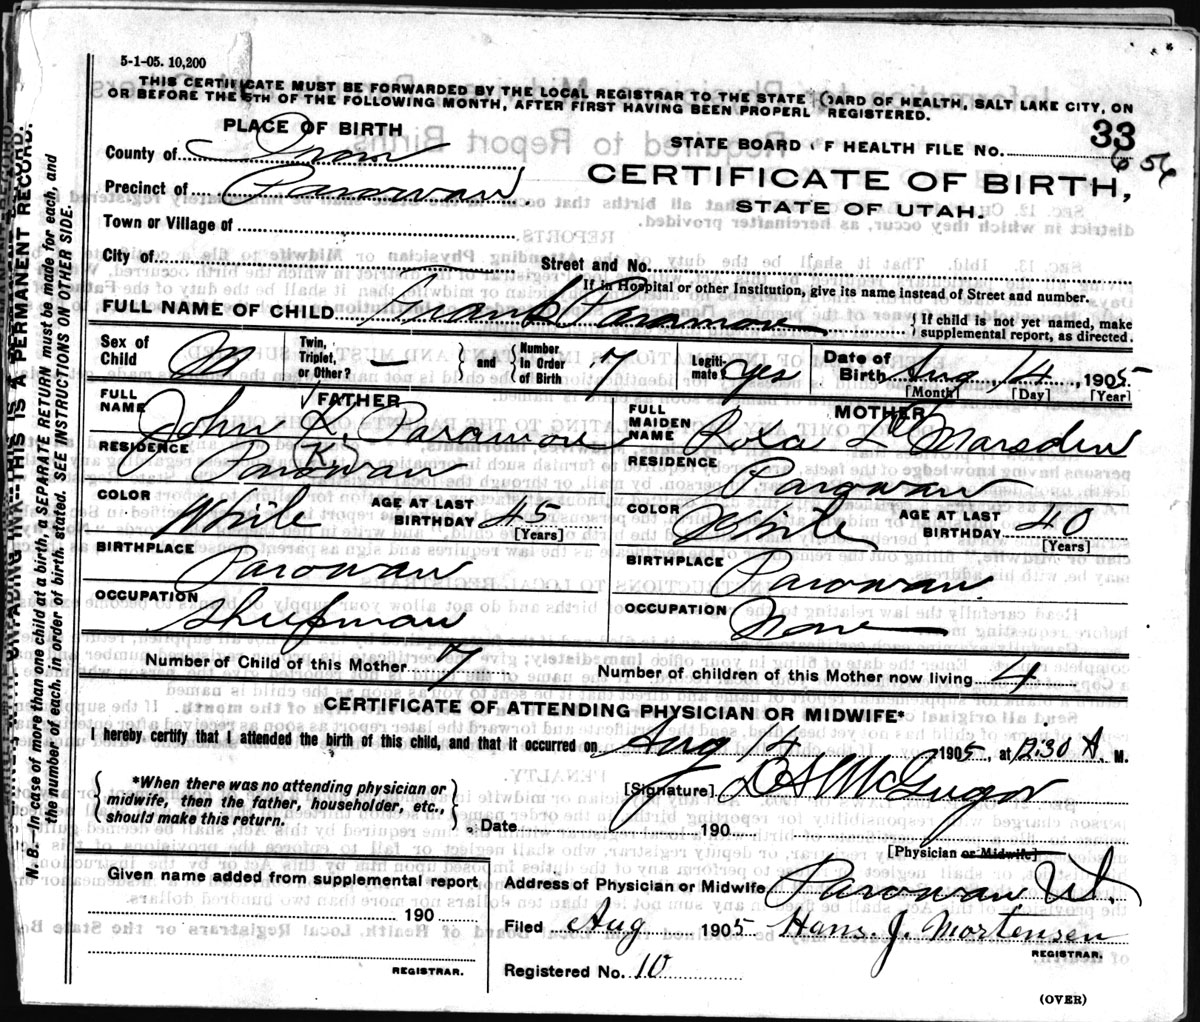 5-1-05. 10,200
THIS CERTIFICATE MUST BE FORWARDED BY THE LOCAL REGISTRAR TO THE STATE BOARD OF HEALTH, SALT LAKE CITY, ON
OR BEFORE THE 5TH OF THE FOLLOWING MONTH, AFTER FIRST HAVING BEEN PROPERL REGISTERED.
PLACE OF BIRTH
County of Iron
Precinct of Parowan.
Town or Village of
City of
STATE BOARD OF HEALTH FILE No. 33
656
CERTIFICATE OF BIRTH,
STATE OF UTAH.
Street and No.
If in Hospital or other Institution, give its name instead of Street and number.
FULL NAME OF CHILD Frank Paramore
If child is not yet named, make supplemental report, as directed.
Sex of Child M
Twin, Triplet, or Other? —
and Number In Order of Birth 7
Legitimate? yes
Date of Birth Aug 14, 1905
[Month] [Day] [Year]
FATHER
FULL NAME John K. Paramore
RESIDENCE Parowan
COLOR White
AGE AT LAST BIRTHDAY 45 [Years]
BIRTHPLACE Parowan
OCCUPATION Sheepman
MOTHER
FULL MAIDEN NAME Roxa L Marsden
RESIDENCE Parowan
COLOR White
AGE AT LAST BIRTHDAY 40 [Years]
BIRTHPLACE Parowan.
OCCUPATION None
Number of Child of this Mother 7
Number of children of this Mother now living 4
CERTIFICATE OF ATTENDING PHYSICIAN OR MIDWIFE*
I hereby certify that I attended the birth of this child, and that it occurred on Aug 14 1905, at 12:30 A. M.
*When there was no attending physician or midwife, then the father, householder, etc., should make this return.
[Signature] McGregor
Date 190
[Physician or Midwife]
Given name added from supplemental report
190
REGISTRAR.
Address of Physician or Midwife Parowan Ut.
Filed Aug 1905 Hans. J. Mortensen
REGISTRAR.
Registered No. 10
(OVER)
N. B.—In case of more than one child at a birth, a SEPARATE RETURN must be made for each, and
the number of each, in order of birth, stated. SEE INSTRUCTIONS ON OTHER SIDE.
WITH UNFADING INK—THIS IS A PERMANENT RECORD.